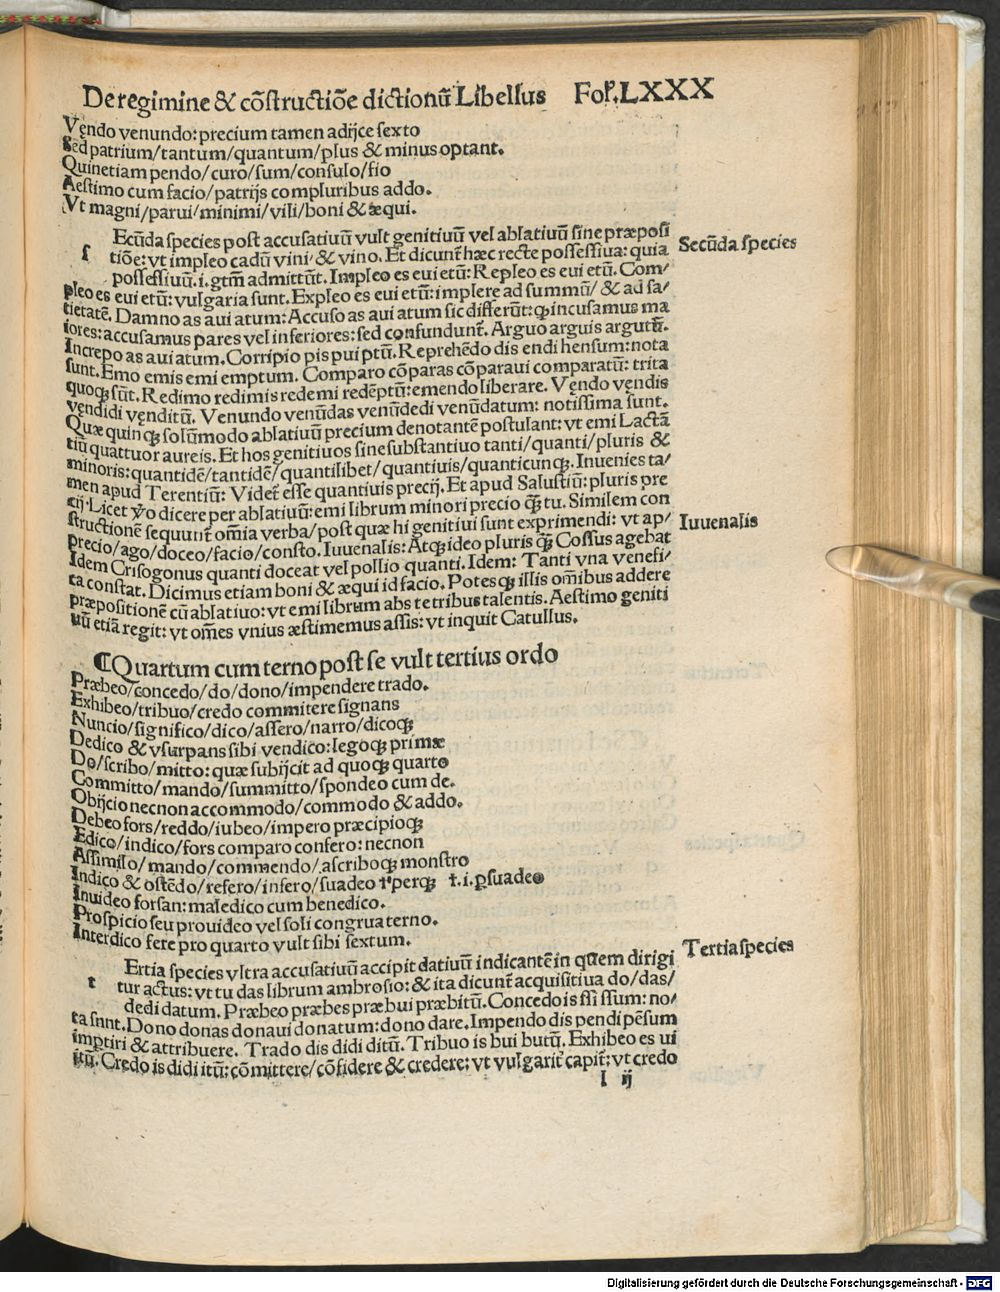 De regimine & cõstructiõe dictionũ Libellus Fol. LXXX
Vẹndo venundo: precium tamen adijce sexto
Sed patrium/tantum/quantum/plus & minus optant.
Quinetiam pendo/curo/sum/consulo/fio
Aestimo cum facio/patrijs compluribus addo.
Vt magni/parui/minimi/vili/boni & æqui.
Ecũda species post accusatiuũ vult genitiuũ vel ablatiuũ sine præposi Secũda species
s tiõe: vt impleo cadũ vini/ & vino. Et dicunt̃ hæc recte possessiua: quia
possessiuũ .i. gtm̃ admittũt. Impleo es eui etũ: Repleo es eui etũ. Com/
pleo es eui etũ: vulgaria sunt. Expleo es eui etũ: implere ad summũ/ & ad sa/
tietatẽ. Damno as aui atum: Accuso as aui atum sic differũt: ꝙ incusamus ma
iores: accusamus pares vel inferiores: sed confundunt̃. Arguo arguis argutũ.
Increpo as aui atum. Corripio pis pui ptũ. Reprehẽdo dis endi hensum: nota
sunt. Emo emis emi emptum. Comparo cõparas cõparaui comparatũ: trita
quoqꝫ sũt. Redimo redimis redemi redẽptũ: emendo liberare. Vẹndo vendis
vendidi venditũ. Venundo venũdas venũdedi venũdatum: notissima sunt.
Quæ quinqꝫ solũmodo ablatiuũ precium denotantẽ postulant: vt emi Lactã
tiũ quattuor aureis. Et hos genitiuos sine substantiuo tanti/quanti/pluris &
minoris: quantidẽ/tantidẽ/quantilibet/quantiuis/quanticunqꝫ. Inuenies ta/
men apud Terentiũ: Videt̃ esse quantiuis precij. Et apud Salustiũ: pluris pre
cij. Licet ỹo dicere per ablatiuũ: emi librum minori precio qꝫ̃ tu. Similem con
structionẽ sequunt̃ om̃ia verba/post quæ hi genitiui sunt exprimendi: vt ap/ Iuuenalis
precio/ago/doceo/facio/consto. Iuuenalis: Atqꝫ ideo pluris qꝫ̃ Cossus agebat
Idem Crisogonus quanti doceat vel pollio quanti. Idem: Tanti vna venefi/
ca constat. Dicimus etiam boni & æqui id facio. Potes qꝫ illis om̃ibus addere
præpositionẽ cũ ablatiuo: vt emi librum abs te tribus talentis. Aestimo geniti
uũ etiã regit: vt om̃es vnius æstimemus assis: vt inquit Catullus.
¶Quartum cum terno post se vult tertius ordo
Præbeo/concedo/do/dono/impendere trado.
Exhibeo/tribuo/credo commitere signans
Nuncio/significo/dico/assero/narro/dicoqꝫ
Dedico & vsurpans sibi vendico: legoqꝫ primæ
Do/scribo/mitto: quæ subijcit ad quoqꝫ quarto
Committo/mando/summitto/spondeo cum de.
Obijcio necnon accommodo/commodo & addo.
Debeo fors/reddo/iubeo/impero præcipioqꝫ
Edico/indico/fors comparo confero: necnon
Assimilo/mando/commendo/ascriboqꝫ monstro
Indico & ostẽdo/refero/infero/suadeo perqꝫ t.i. ꝑsuadeo
Inuideo forsan: maledico cum benedico.
Prospicio seu prouideo vel soli congrua terno.
Interdico fere pro quarto vult sibi sextum.
Ertia species vltra accusatiuũ accipit datiuũ indicantẽ in quem dirigi Tertia species
t tur actus: vt tu das librum ambrosio: & ita dicunt̃ acquisitiua do/das/
dedi datum. Præbeo præbes præbui præbitũ. Concedo is ssi ssum: no/
ta snnt. Dono donas donaui donatum: dono dare. Impendo dis pendi pẽsum
imptiri & attribuere. Trado dis didi ditũ. Tribuo is bui butũ. Exhibeo es ui
itũ. Credo is didi itũ: cõmittere/cõfidere & credere: vt vulgarit̃ capit̃: vt credo
l ij
Digitalisierung gefördert durch die Deutsche Forschungsgemeinschaft - DFG